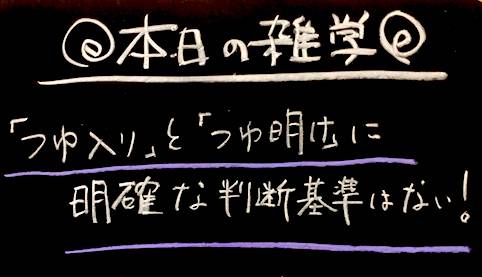 本日の雑学
「つゆ入り」と「つゆ明け」に
明確な判断基準はない!